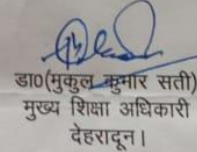 डा0(मुकुल कुमार सती)
मुख्य शिक्षा अधिकारी
देहरादून।